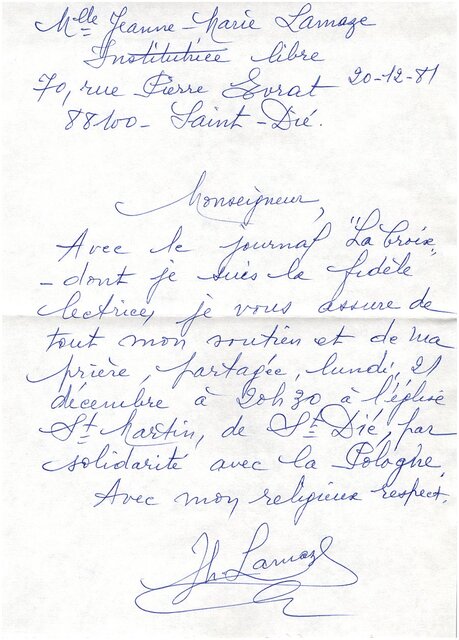 Mlle Jeanne-Marie Lamaze
Institutrice libre
70, rue Pierre Evrat 20-12-81
88100 - Saint-Dié.
Monseigneur,
Avec le journal "La Croix"
- dont je suis la fidèle
lectrice, je vous assure de
tout mon soutien et de ma
prière, partagée, lundi, 21
décembre à 20h30 à l'église
St Martin, de St Dié, par
solidarité avec la Pologne.
Avec mon religieux respect.
Lamaze